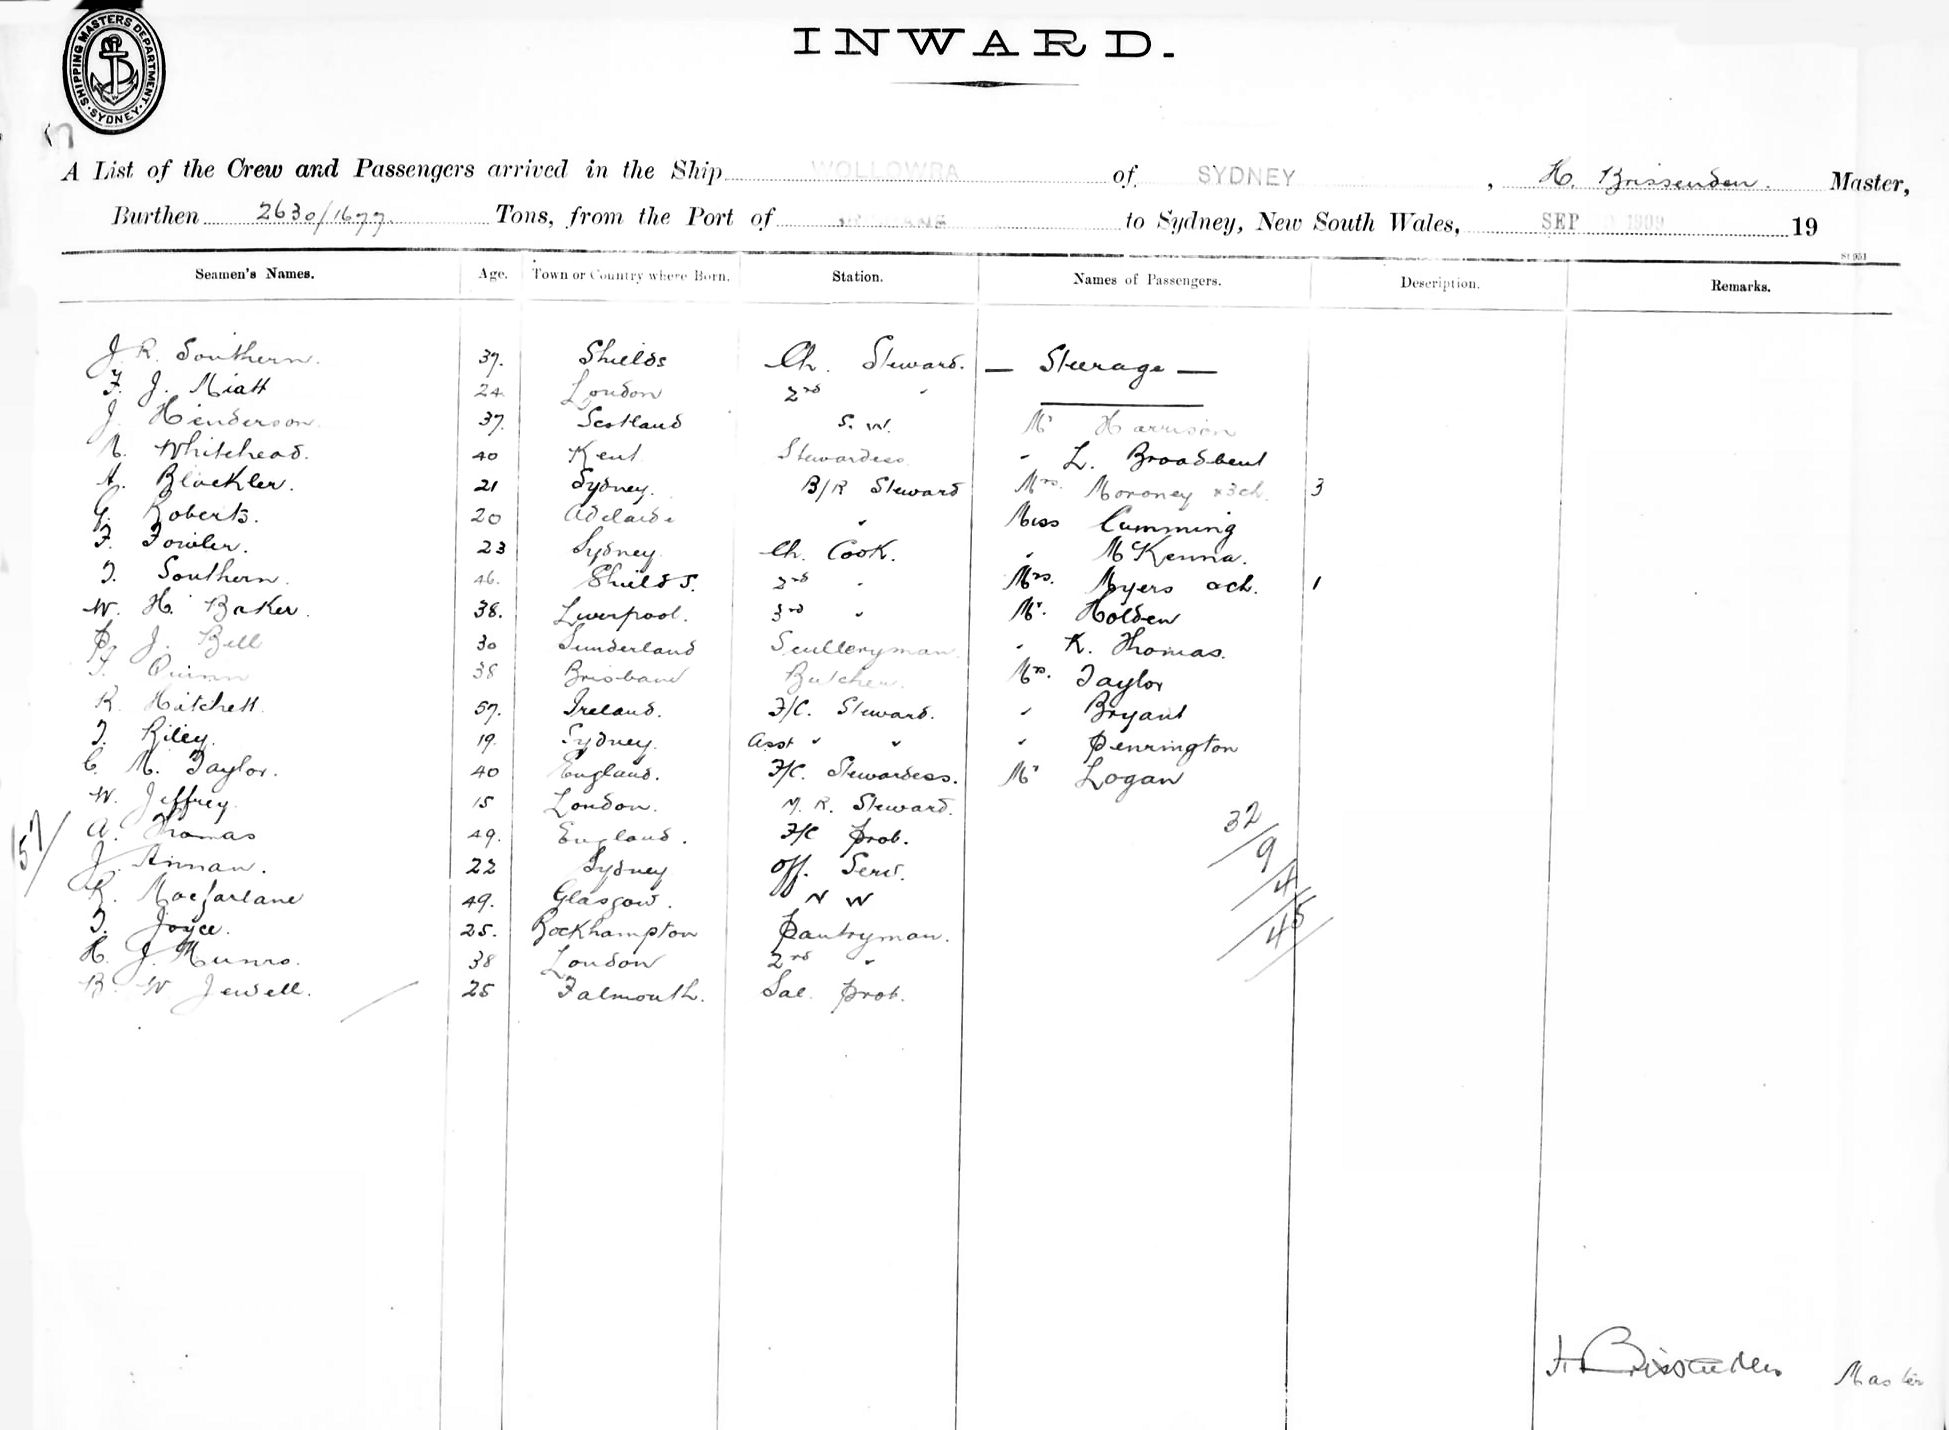 SHIPPING MASTERS DEPARTMENT SYDNEY
INWARD.
A List of the Crew and Passengers arrived in the Ship WOLLOWRA of SYDNEY, H. Brissenden. Master,
Burthen 2630/1677 Tons, from the Port of BRISBANE to Sydney, New South Wales, SEP 1909 19
Seamen's Names. Age. Town or Country where Born. Station. Names of Passengers. Description. Remarks.
J. R. Southern. 37. Shields Ch. Steward. — Steerage —
F. J. Miatt 24 London 2nd "
J. Henderson. 37. Scotland S. W. Mr Harrison
M. Whitehead. 40 Kent Stewardess " L. Broadbent
A. Blackler. 21 Sydney. B/R Steward Mrs. Moroney & 3 ch. 3
G. Roberts. 20 Adelaide " Miss Cumming
F. Fowler. 23 Sydney Ch. Cook. " McKenna.
T. Southern. 46. Shields. 2nd " Mrs. Myers & ch. 1
W. H. Baker. 38. Liverpool. 3rd " Mr. Holden
P. J. Bell 30 Sunderland Sculleryman " K. Thomas.
T. Quinn 38 Brisbane Butcher. Mrs. Taylor
R. Hatchett 57. Ireland. F/C. Steward. " Bryant
T. Riley. 19. Sydney. Asst " " " Penrington
C. M. Taylor. 40 England. F/C. Stewardess. Mr Logan
W. Jeffrey. 15 London. M. R. Steward.
A. Thomas 49. England. F/C Prob. 32/
J. Annan. 22 Sydney Off. Serv. 9/
157/
R. Macfarlane 49. Glasgow. N W 4/
T. Joyce. 25. Rockhampton Pantryman. 45/
H. J. Munro. 38 London 2nd "
B. W Jewell. 25 Falmouth. Sal. Prob.
H Brissenden Master